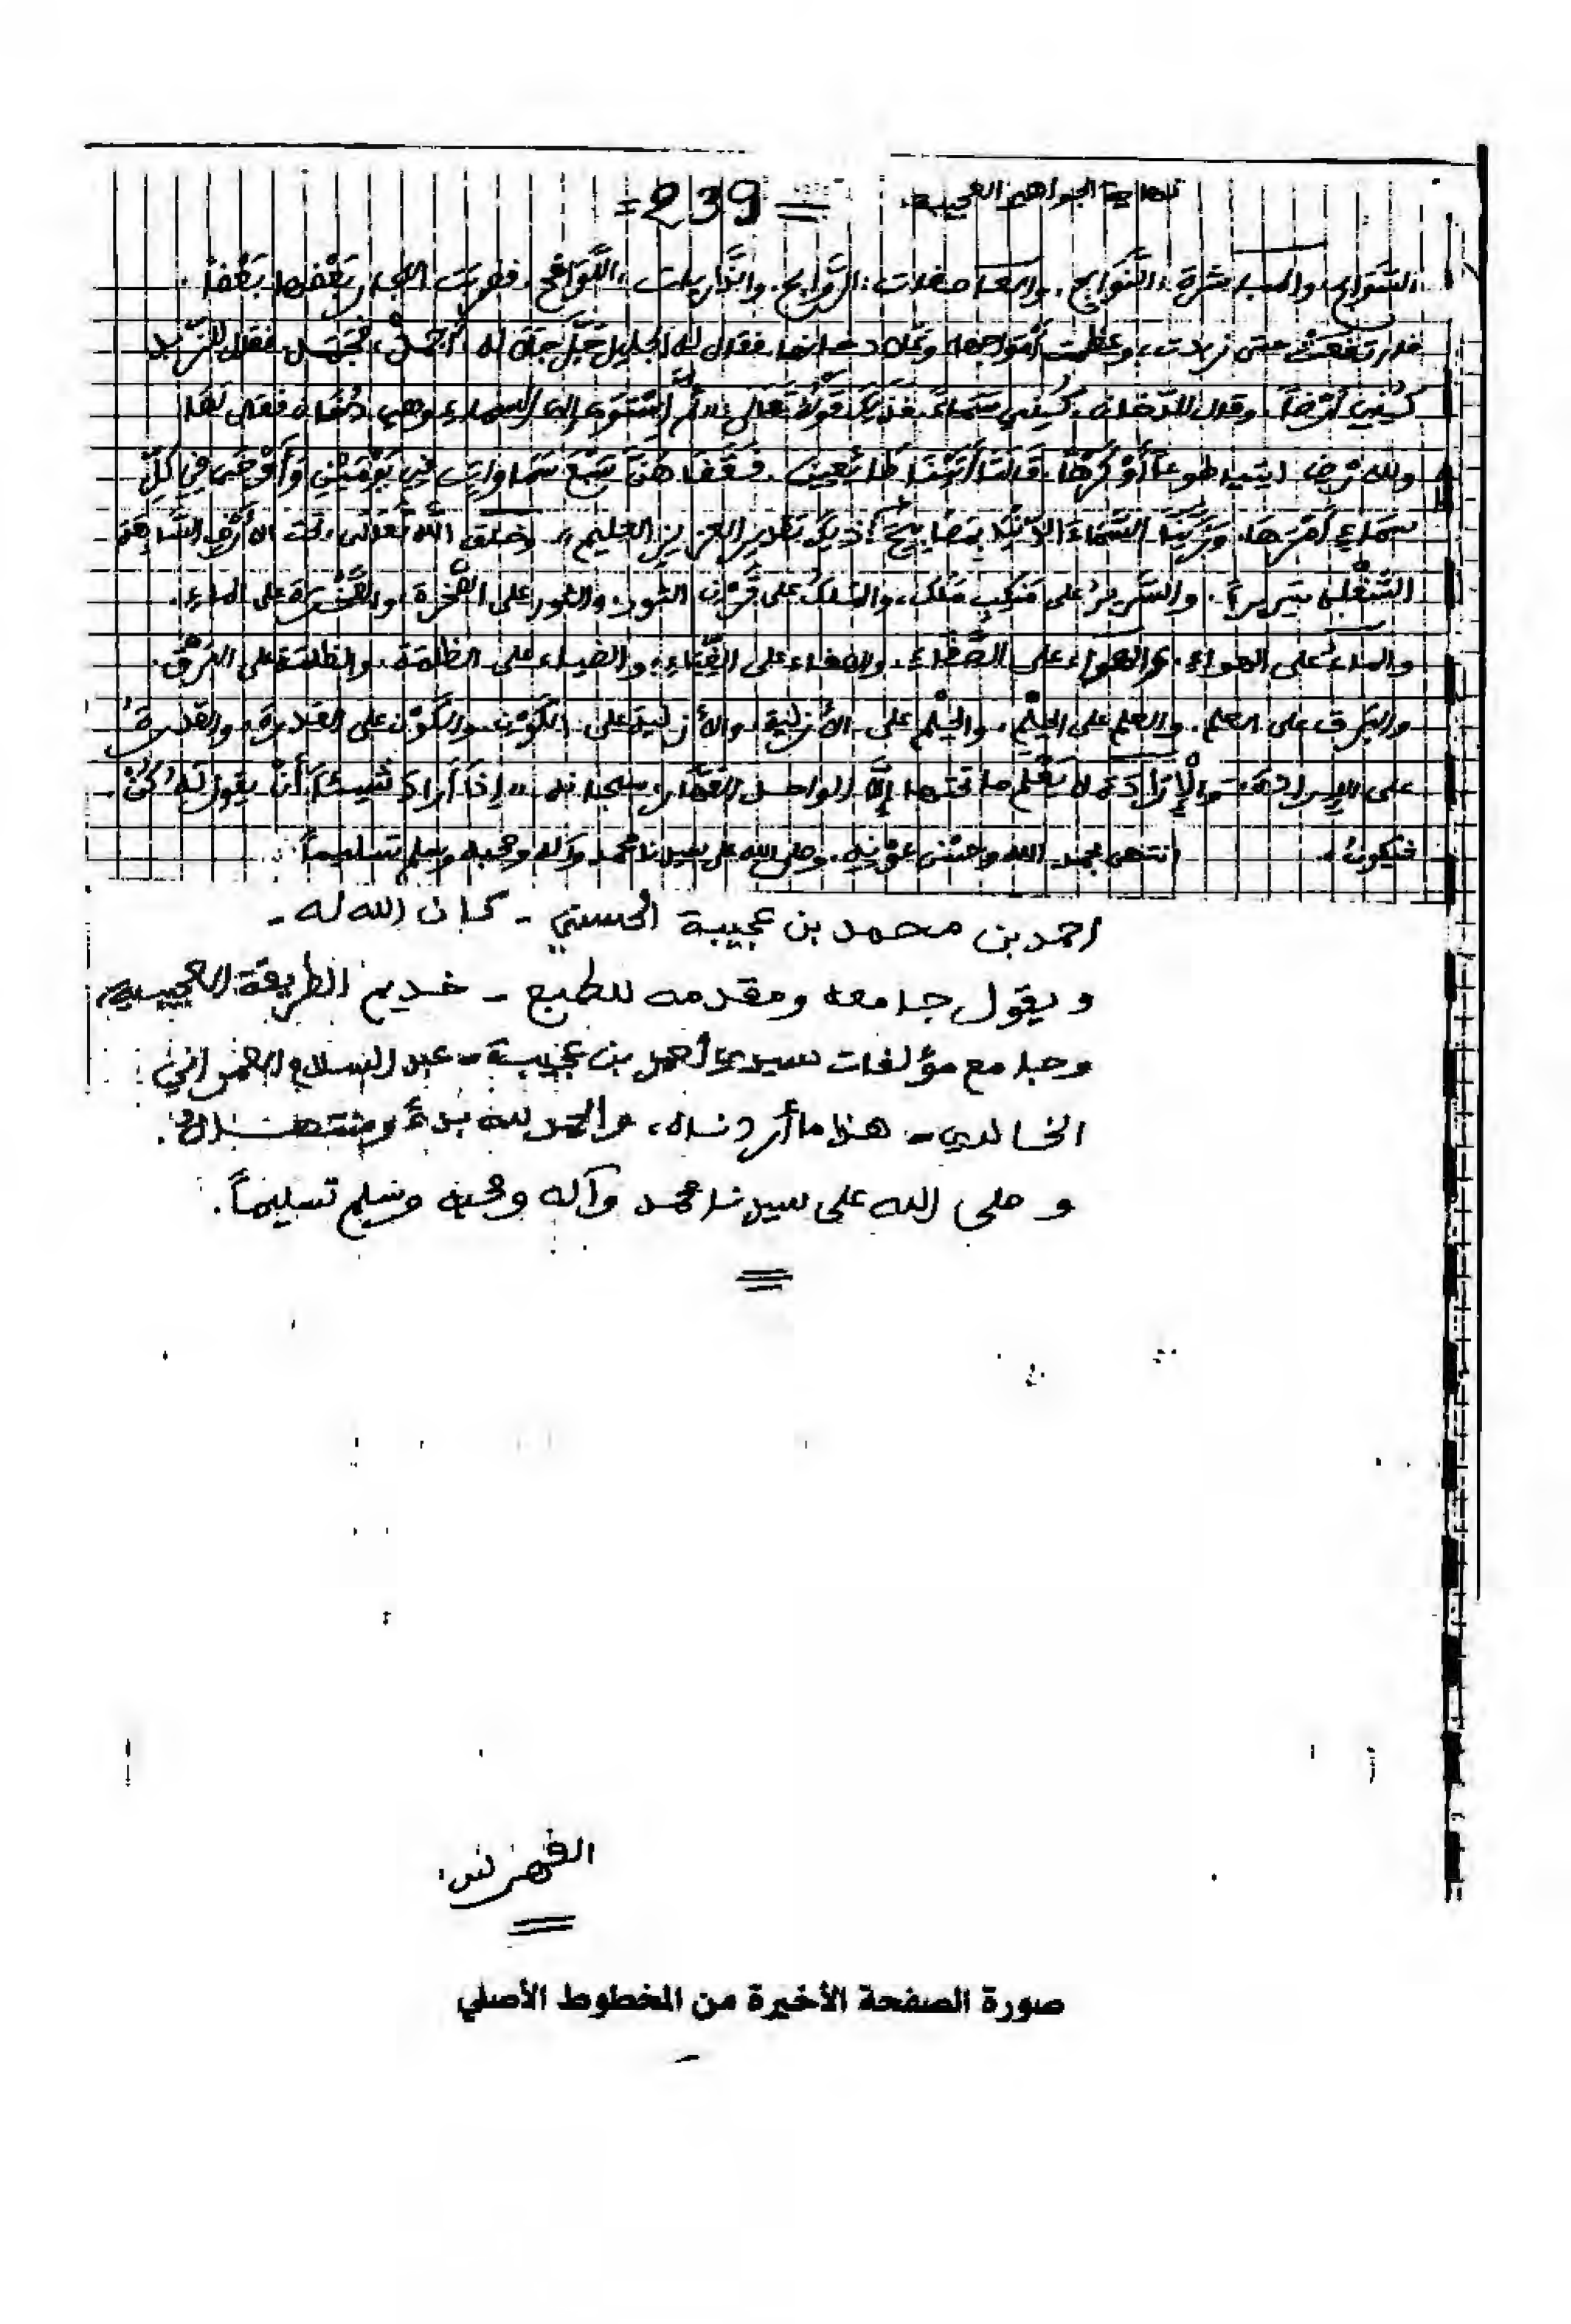 الجواهر العجيبة = 239 =
السَّوَابح، والمباشرة، النَّوَابح، والعاصفات: الرَّوَابح، والذَّاريات، اللَّوَاقح، فضربت البحار بَعْضها بَعْضاً.
فارتفعَتْ حتى زبدت، وعظمت أمواجها وعلا دخانها، فقال له الجليل جَلَّ جلاله اجمدْ، فجمد، فقال للزَّبد
كُونِي أرْضاً. وقال للدّخان، كُونِي سَمَاءً، فذلك قَوْلُهُ تَعَالَى: «ثُمَّ اسْتَوَى إلى السماء وهي دُخَان فقال لَهَا
وللأرْض ايتيا طوعاً أوْ كَرْهاً، قَالَتَا أتَيْنَا طَائِعِين. فَقَضَاهُنَّ سَبْعَ سَمَاوَاتٍ فِي يَوْمَيْنِ وَأَوْحَى فِي كُلِّ
سَمَاءٍ أَمْرَهَا، وَزَيَّنَا السَّمَاءَ الدُّنْيَا بِمَصَابِيحَ، ذَلِكَ تَقْدِيرُ العزيز العليم». وخلق اللَّه تَعَالَى تحت الأرْضِ السَّابعَة
السُّفْلَى سَرِيراً. والسَّرِيرُ على مَنْكِبِ مَلَك، والمَلَكُ على قَرْن الثور، والثور على الصَّخرة، والصَّخْرَة على الماء.
والماءُ على الهواء، والهواء على الصَّفَاء، والصفاء على الضِّيَاء، والضياء على الظلمة، والظلمة على البَرْق.
والبَرق على العلم. والعلم على الحِلْمِ، والحِلْم على الأزلية، والأزلية على الكَوْن، والكَوْن على القدرة، والقدرةُ
على الإرادة، والْإِرَادَة لا يَعْلَم ما تحتها إلَّا الواحد القَهَّار، سبحانه «إذَا أَرَادَ شَيئاً أَنْ يقول لَهُ كُنْ.
فيكونُ». انتهى بحمد الله وحسْن عَوْنِهِ. وصلى الله على سيدنا محمد وآله وصحبه وسلم تسليماً.
احمد بن محمد بن عجيبة الحسني - كان الله له -
ويقول جامعه ومقدمه للطبع - خديم الطريقة العجيبية،
وجامع مؤلفات سيدي أحمد بن عجيبة - عبد السلام العمراني
الخالدي - هذا ما أردناه، والحمد لله بدءً ومنتهى.
وصلى الله على سيدنا محمد وآله وصحبه وسلم تسليماً.
الفهرس.
صورة الصفحة الأخيرة من المخطوط الأصلي